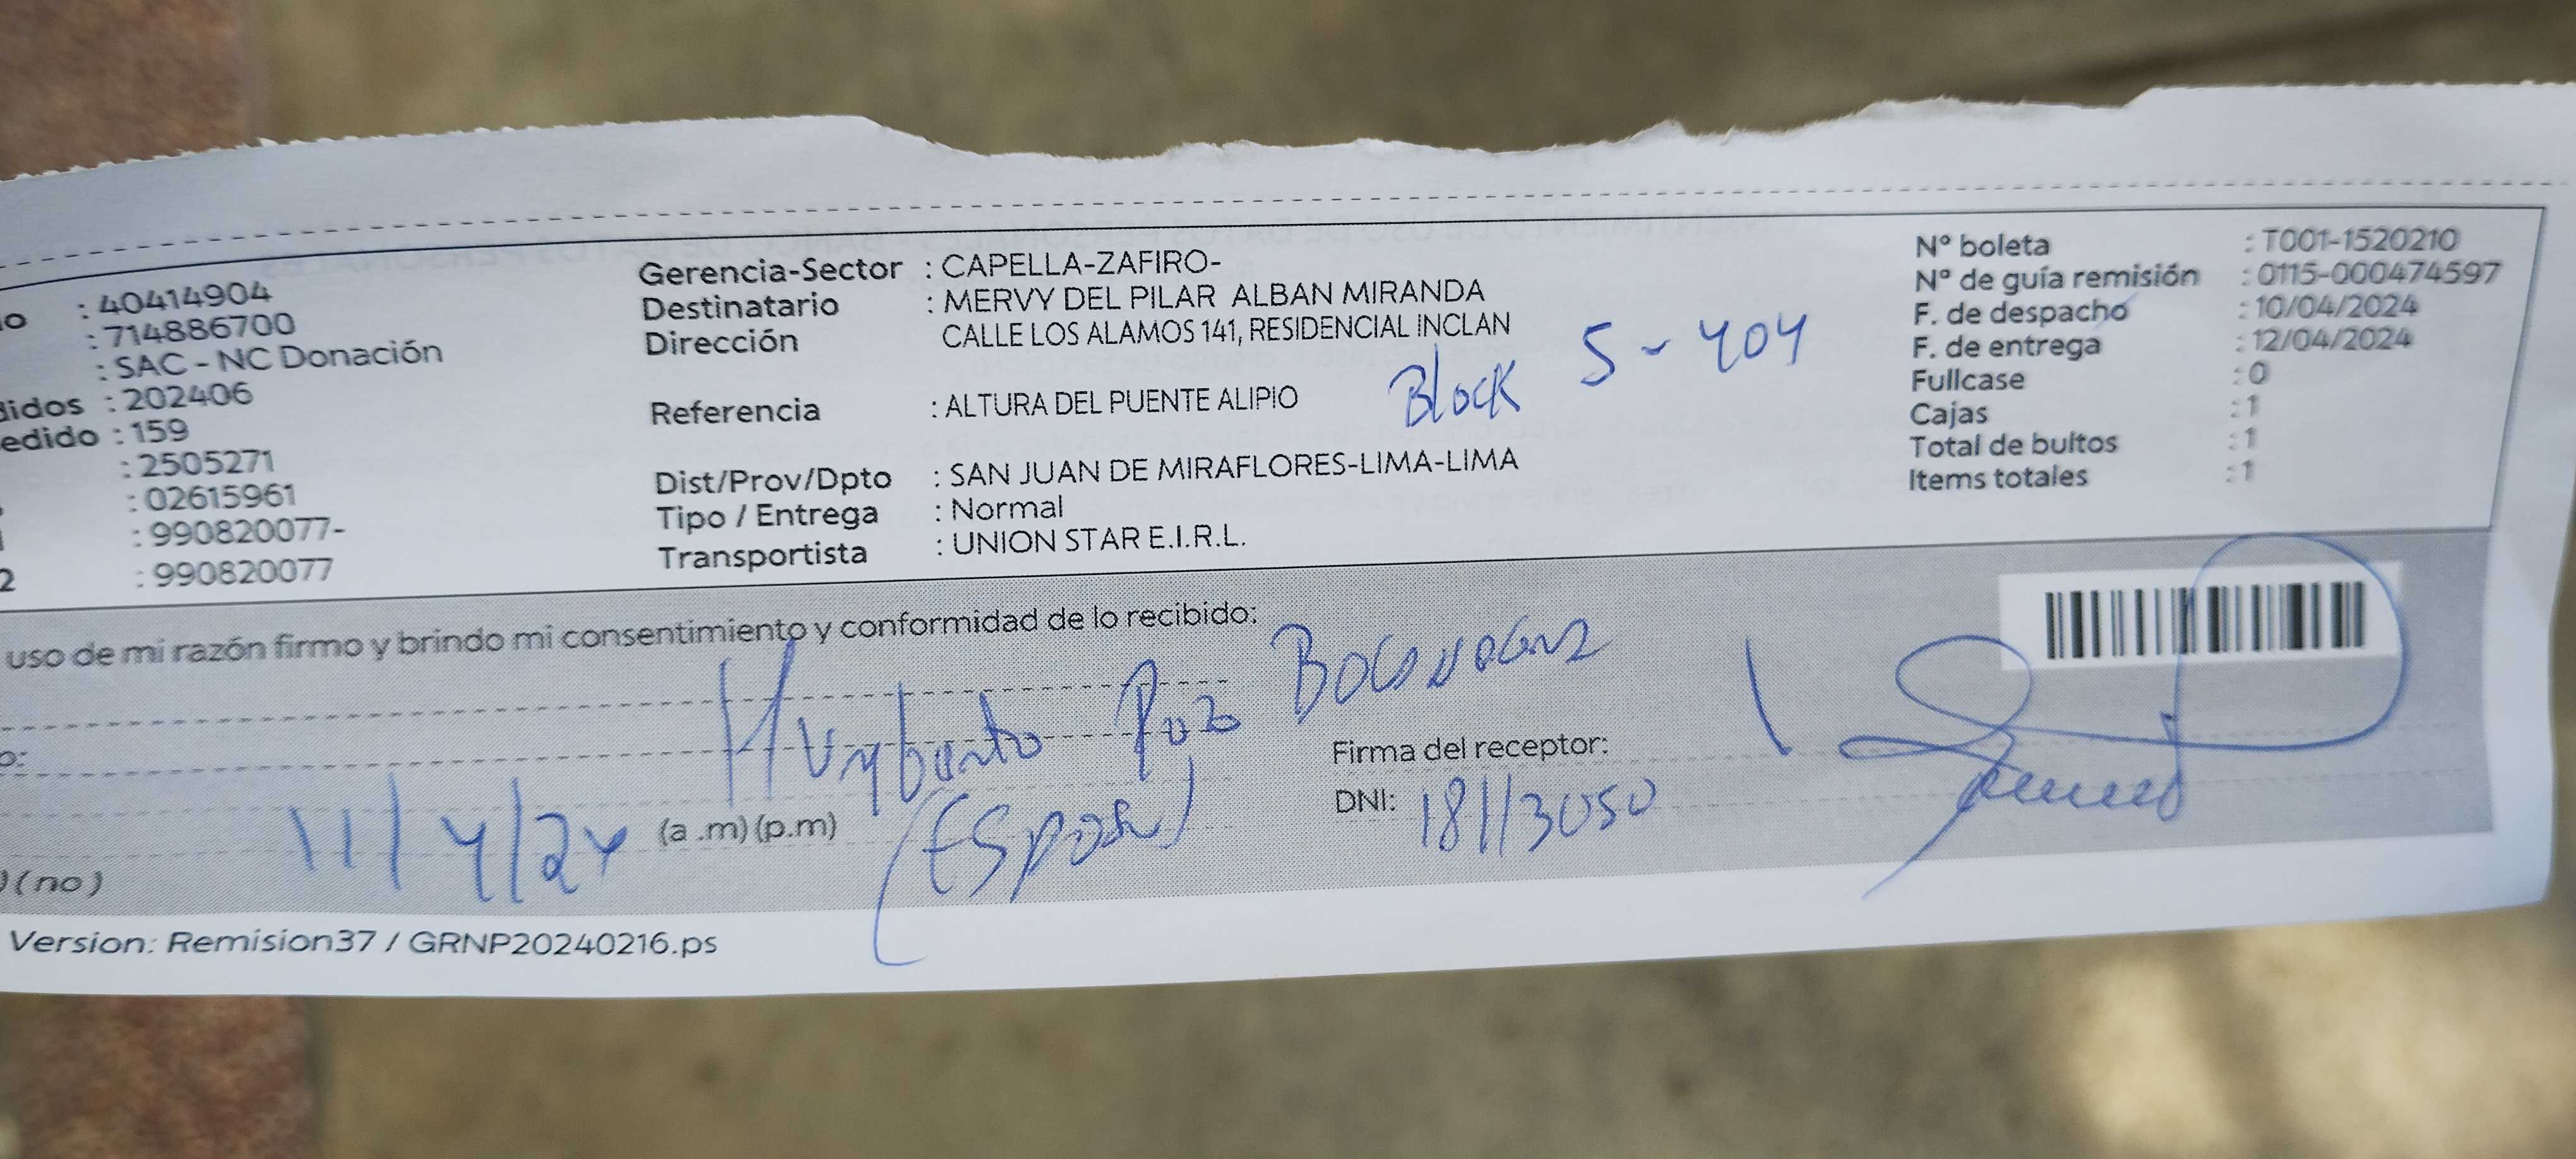 o : 40414904
: 714886700
: SAC - NC Donación
didos : 202406
edido : 159
: 2505271
: 02615961
1 : 990820077-
2 : 990820077
Gerencia-Sector : CAPELLA-ZAFIRO-
Destinatario : MERVY DEL PILAR ALBAN MIRANDA
Dirección CALLE LOS ALAMOS 141, RESIDENCIAL INCLAN
Block S - 404
Referencia : ALTURA DEL PUENTE ALIPIO
Dist/Prov/Dpto : SAN JUAN DE MIRAFLORES-LIMA-LIMA
Tipo / Entrega : Normal
Transportista : UNION STAR E.I.R.L.
N° boleta : T001-1520210
N° de guía remisión : 0115-000474597
F. de despacho : 10/04/2024
F. de entrega : 12/04/2024
Fullcase : 0
Cajas : 1
Total de bultos : 1
Items totales : 1
uso de mi razón firmo y brindo mi consentimiento y conformidad de lo recibido:
Humberto
o:
11/4/24 (a .m) (p.m)
(Esposo)
Firma del receptor:
DNI: 18113050
) (no)
Version: Remision37 / GRNP20240216.ps